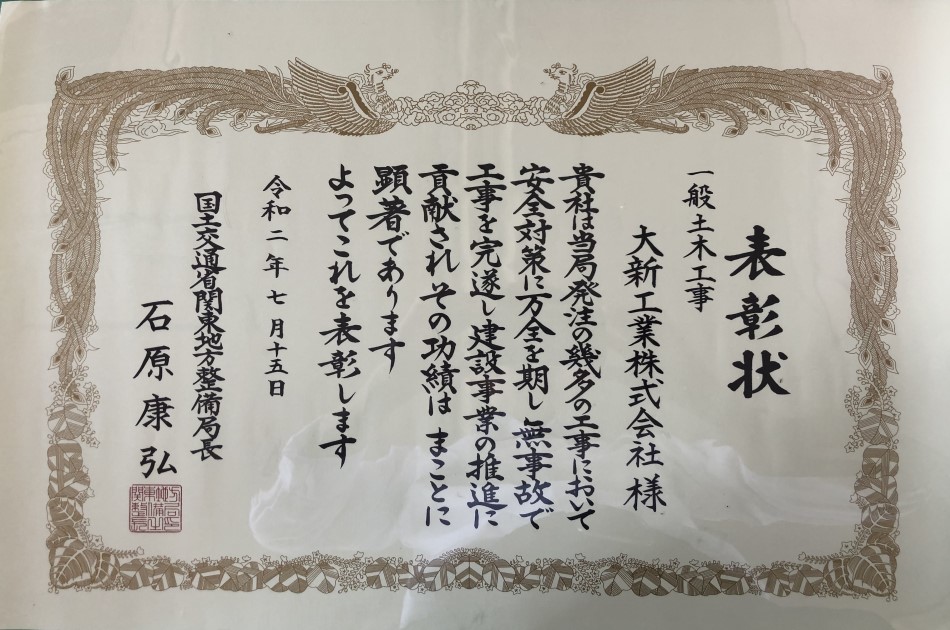 表彰状
一般土木工事
大新工業株式会社様
貴社は当局発注の幾多の工事において
安全対策に万全を期し無事故で
工事を完遂し建設事業の推進に
貢献されその功績はまことに
顕著であります
よってこれを表彰します
令和二年七月十五日
国土交通省関東地方整備局長
石原康弘